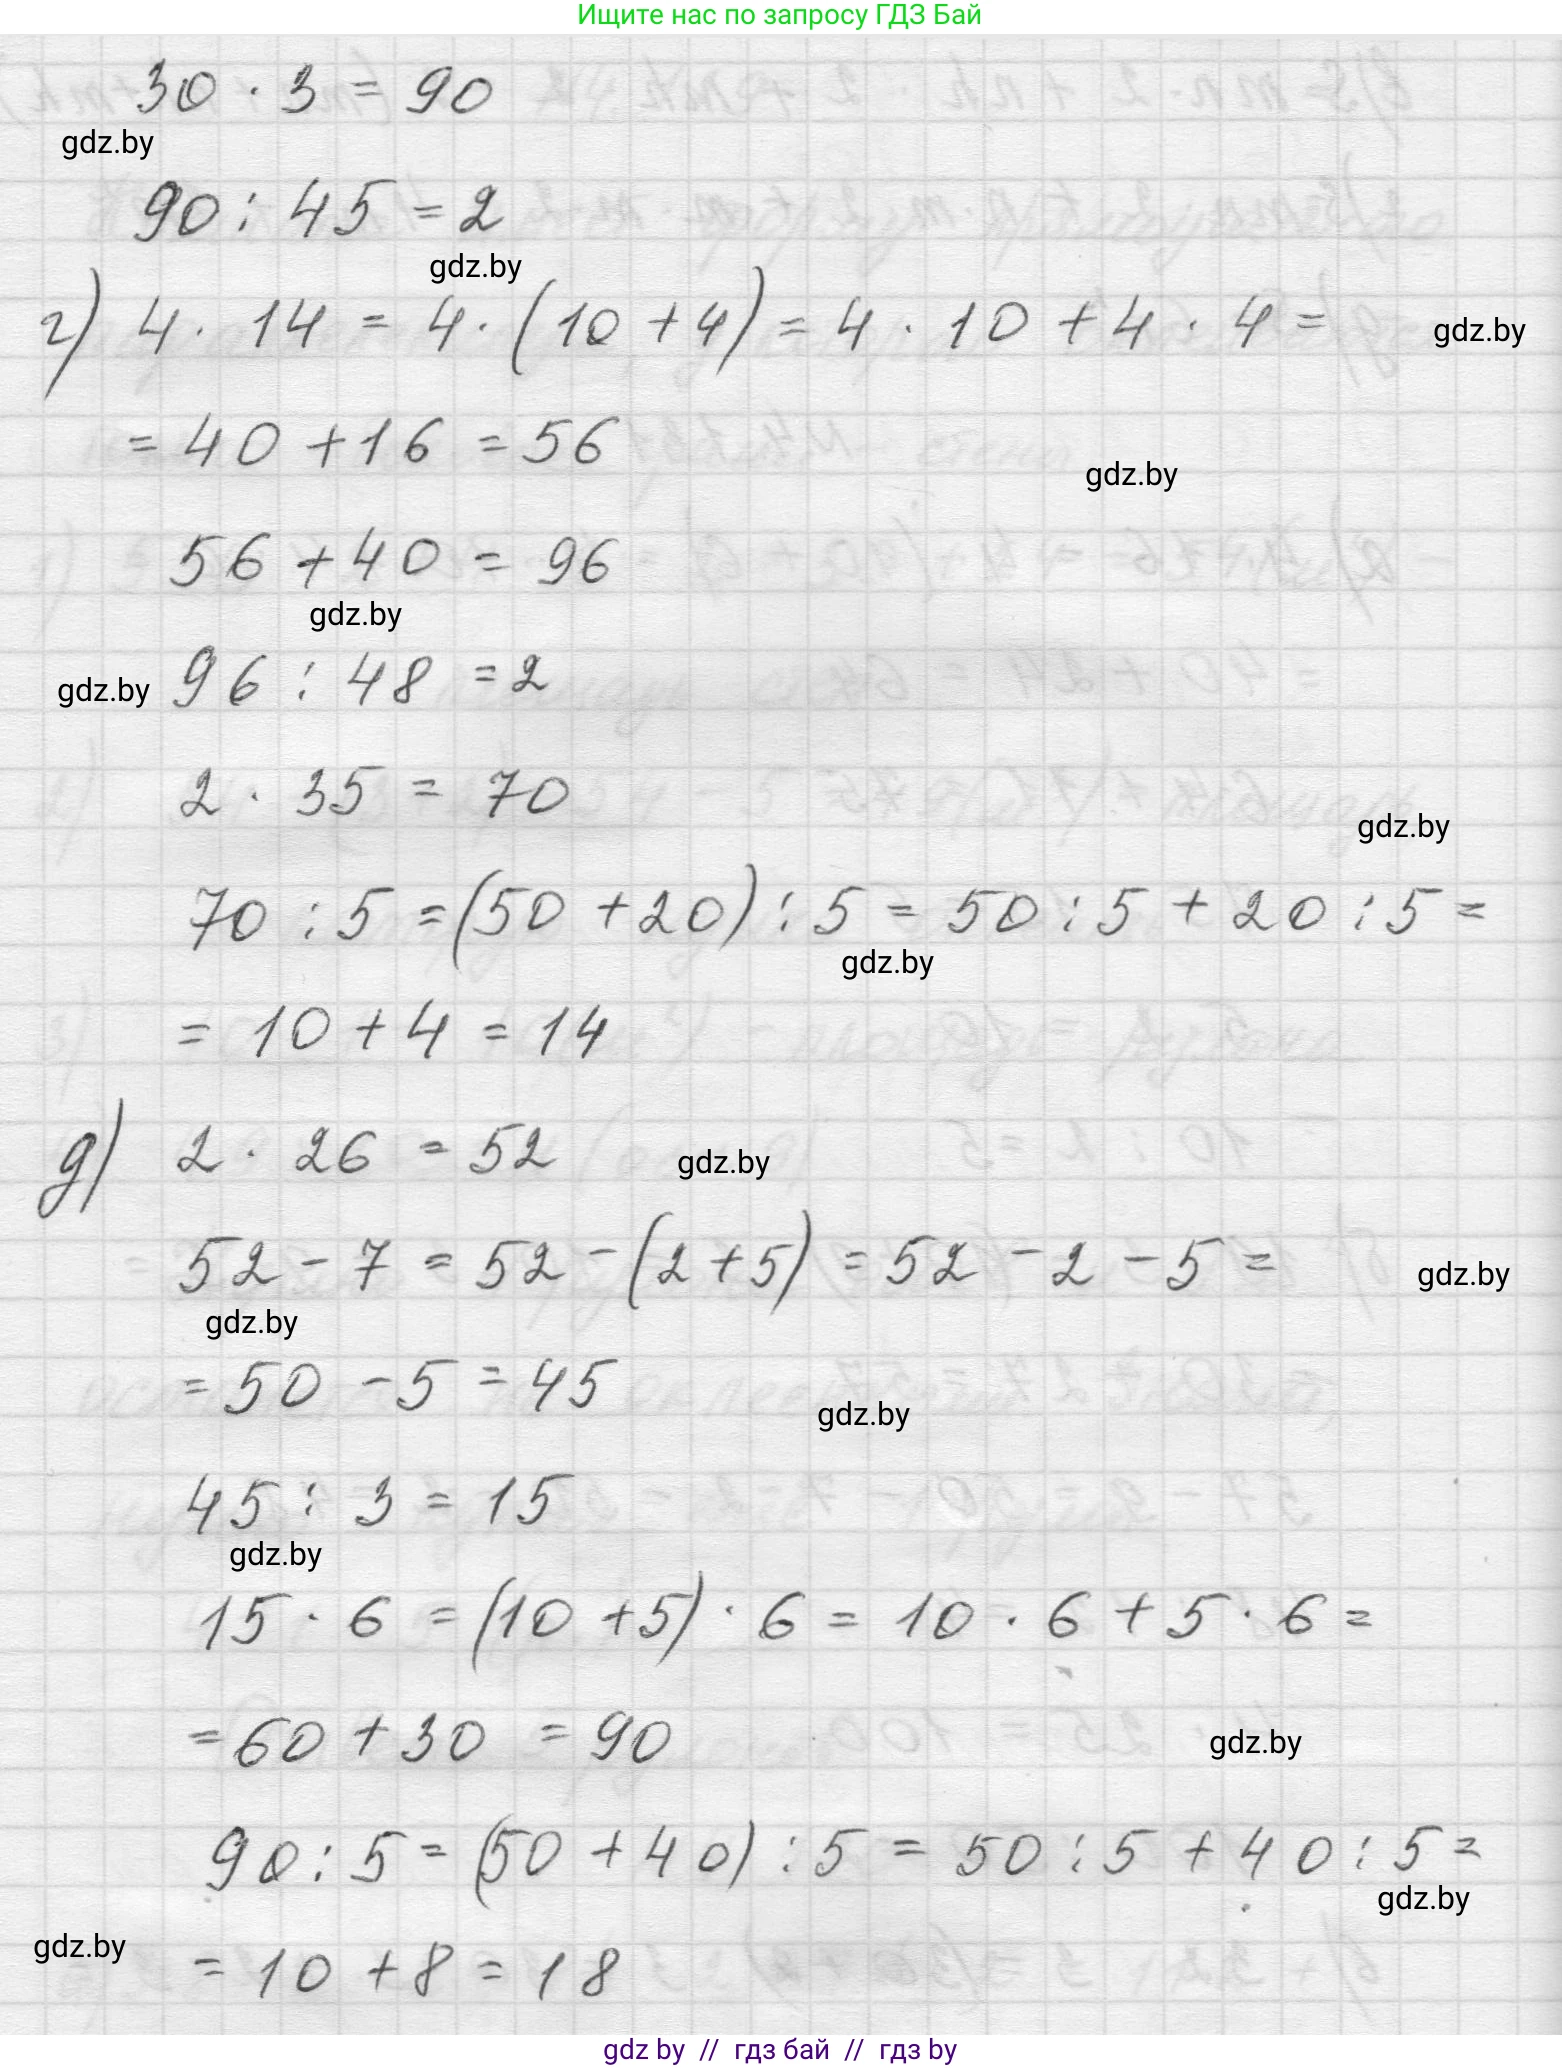 Ищите нас по запросу ГДЗ Бай
30 · 3 = 90
gdz.by
90 : 45 = 2
gdz.by
г) 4 · 14 = 4 · (10 + 4) = 4 · 10 + 4 · 4 =
gdz.by
= 40 + 16 = 56
gdz.by
56 + 40 = 96
gdz.by
96 : 48 = 2
gdz.by
2 · 35 = 70
gdz.by
70 : 5 = (50 + 20) : 5 = 50 : 5 + 20 : 5 =
gdz.by
= 10 + 4 = 14
д) 2 · 26 = 52
gdz.by
52 - 7 = 52 - (2 + 5) = 52 - 2 - 5 =
gdz.by
gdz.by
= 50 - 5 = 45
gdz.by
45 : 3 = 15
gdz.by
15 · 6 = (10 + 5) · 6 = 10 · 6 + 5 · 6 =
= 60 + 30 = 90
gdz.by
90 : 5 = (50 + 40) : 5 = 50 : 5 + 40 : 5 =
gdz.by
gdz.by
= 10 + 8 = 18
gdz by // гдз бай // гдз by